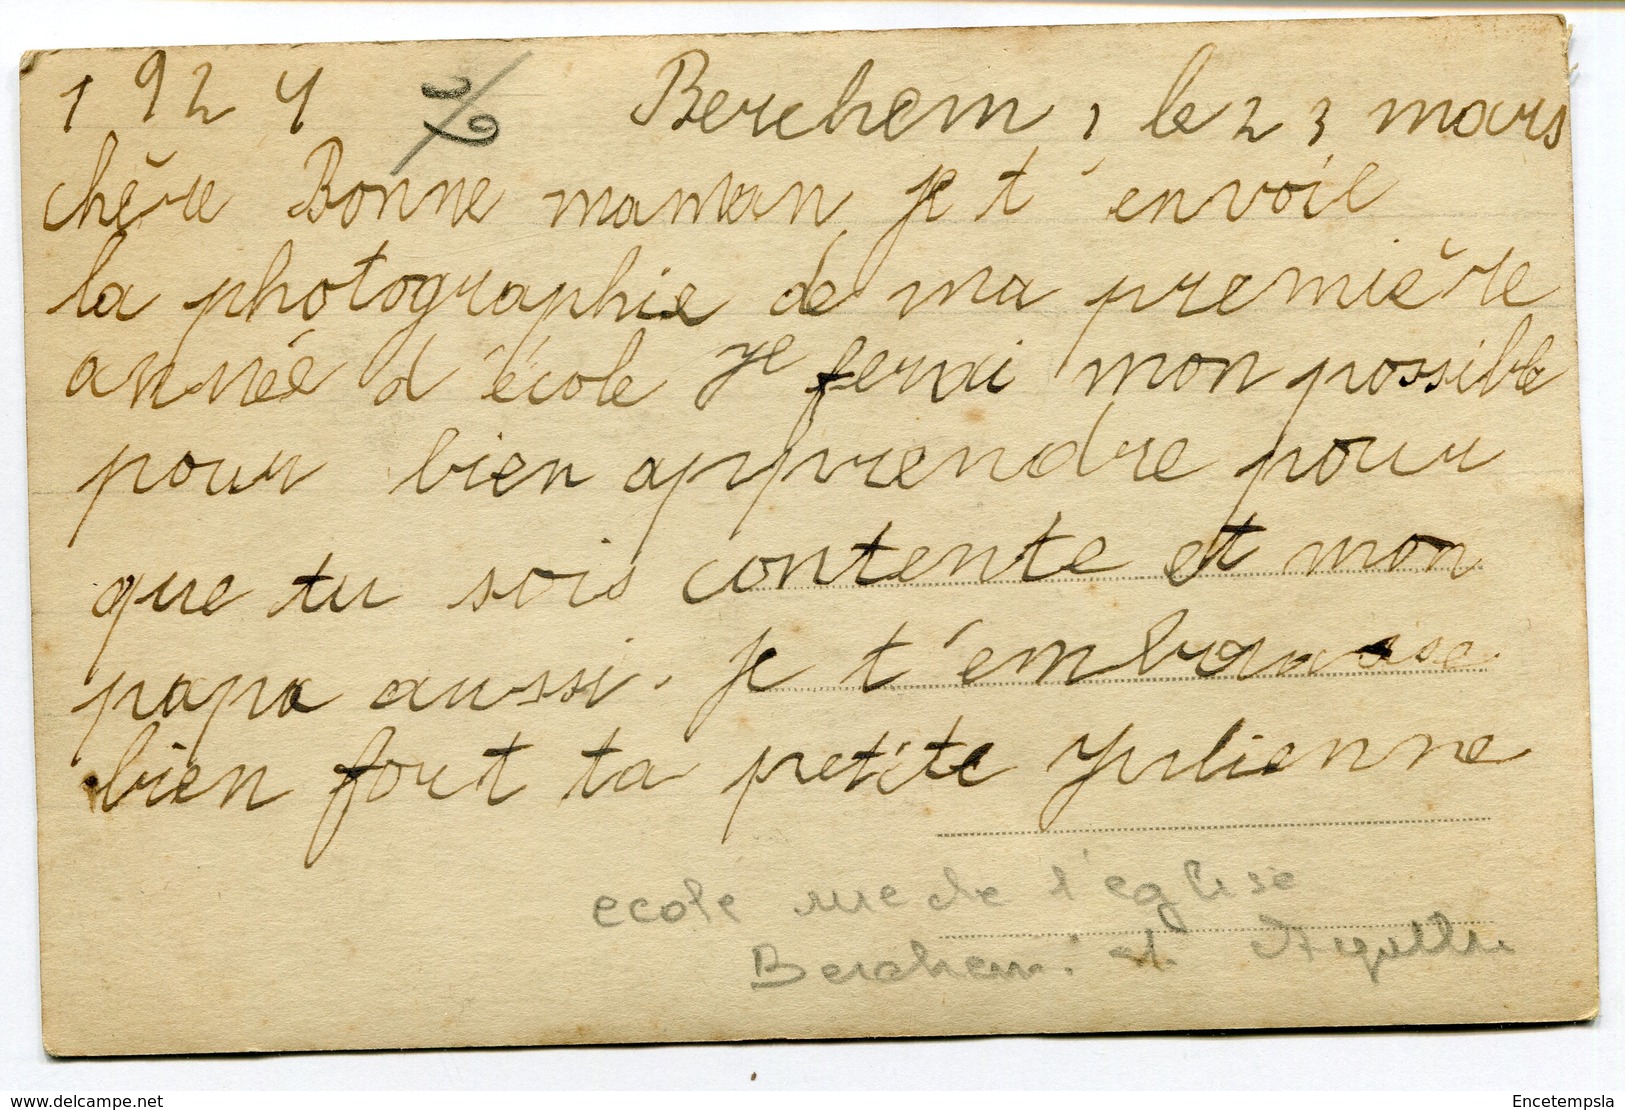 1924 Berchem, le 23 mars
chère Bonne maman je t'envoie
la photographie de ma première
année d'école je ferai mon possible
pour bien apprendre pour
que tu sois contente et mon
papa aussi. je t'embrasse
bien fort ta petite Julienne
ecole rue de l'église
Berchem. st.
delcampe.net
Encetempsla